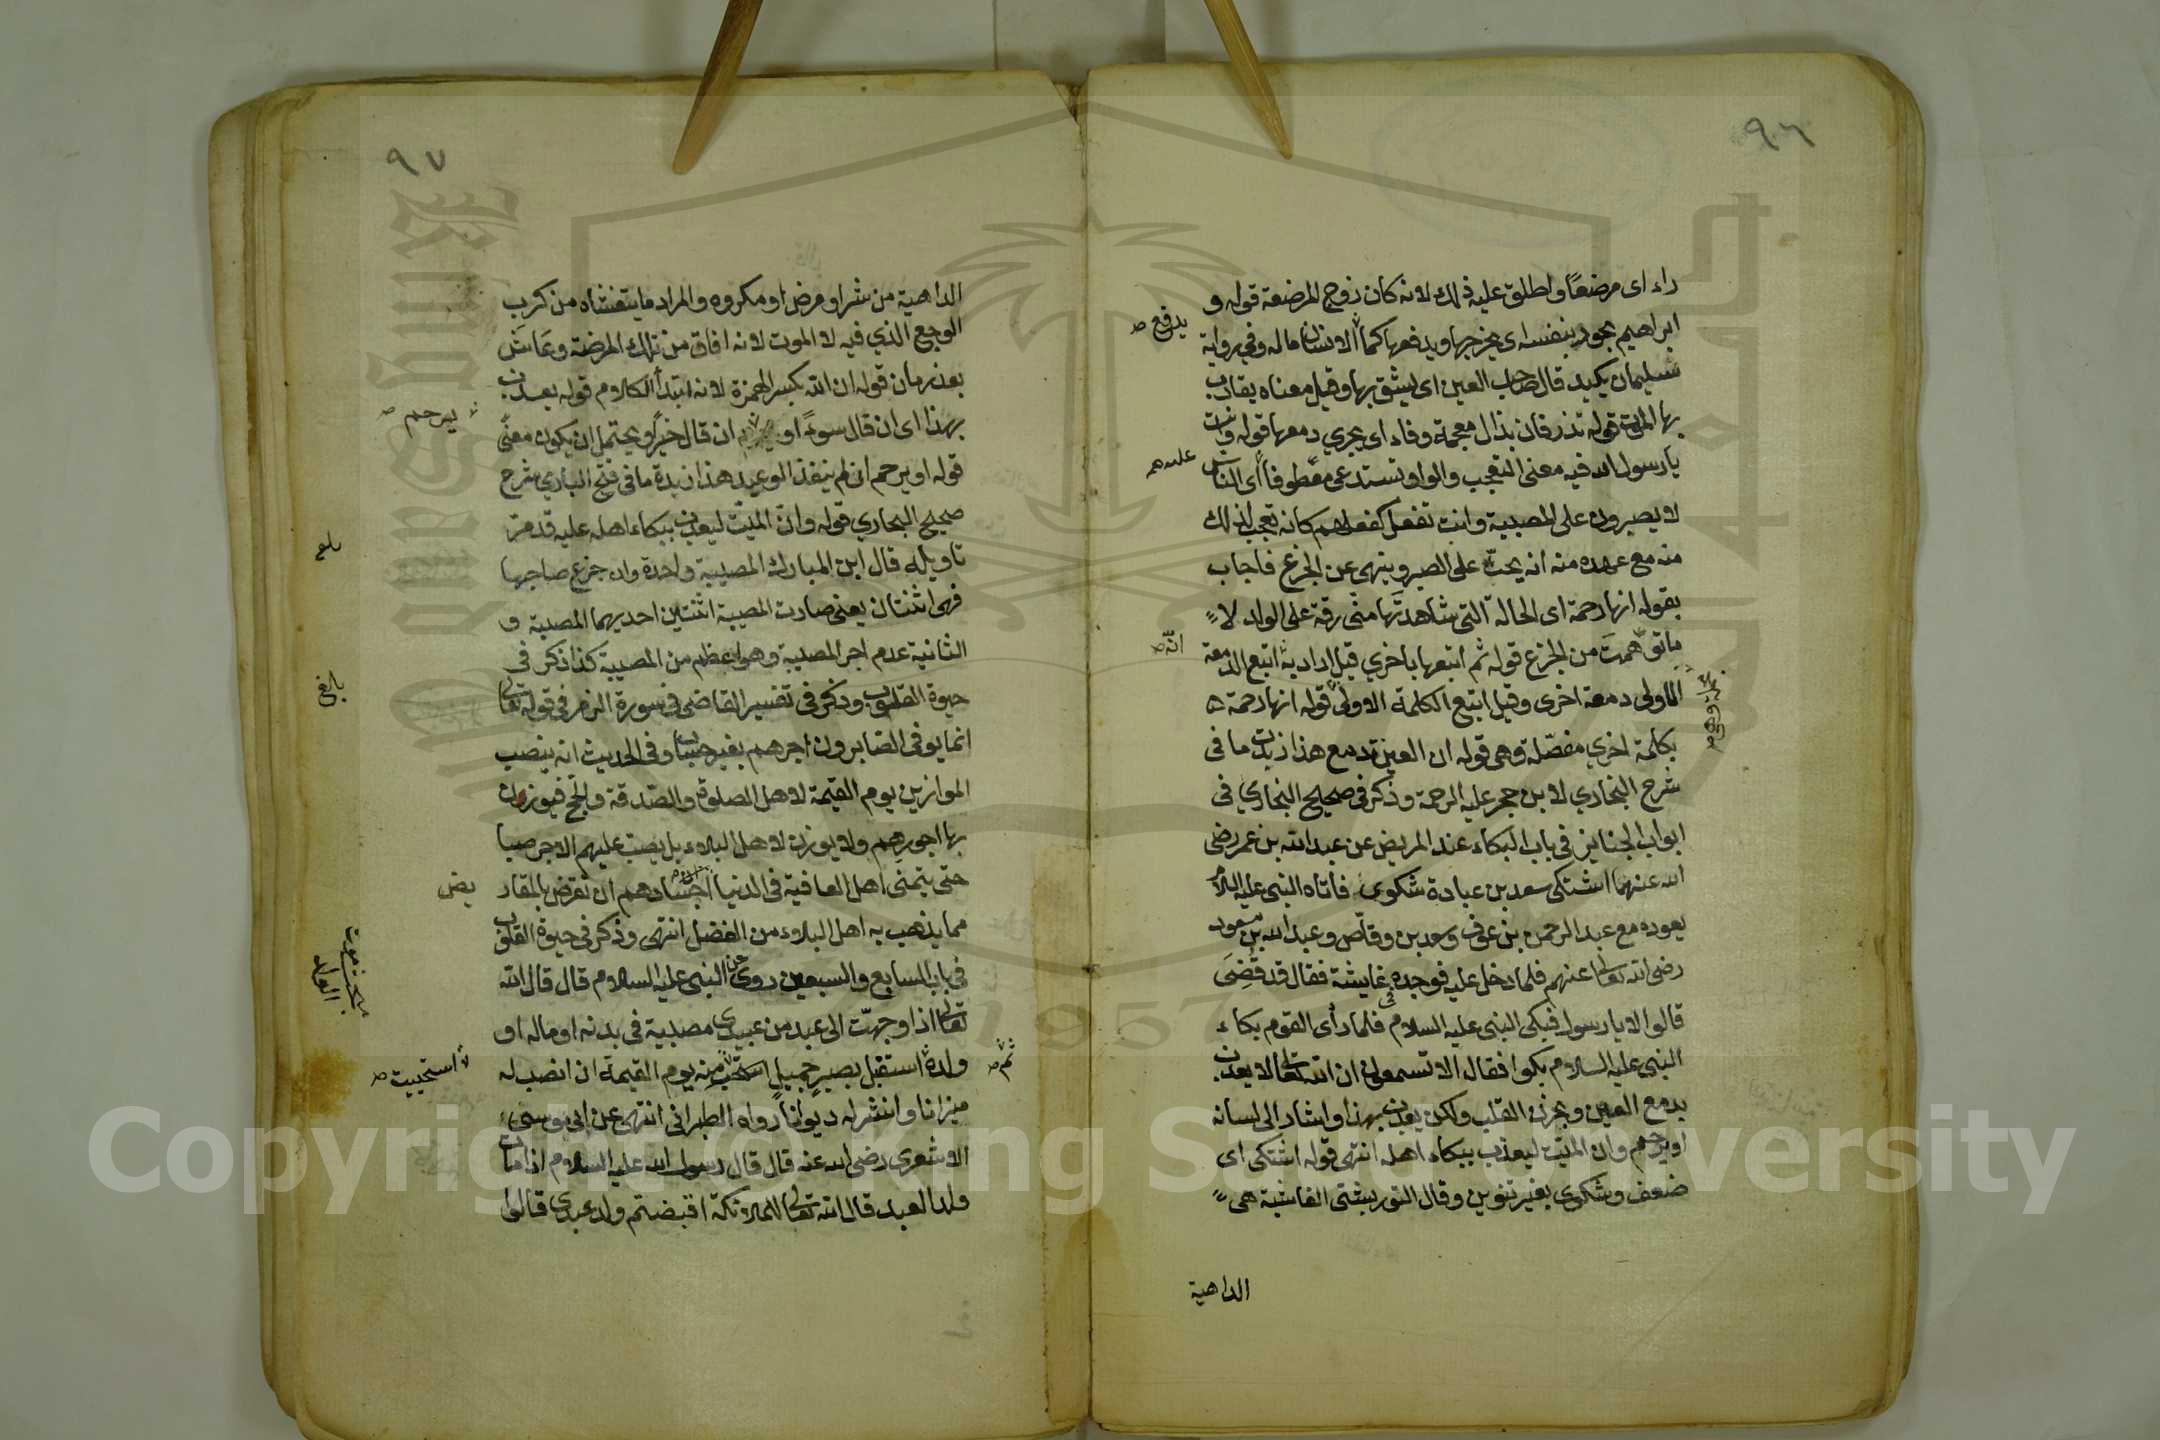 ٩٦
راء اى مرضعًا واطلق عليه ذلك لانه كان زوج المرضعة قوله و
ابراهيم يجود بنفسه اى يخرجها ويدفعها كما الانسان ماله وفي رواية
يدفع صح
سليمان يكيد قال صاحب العين اى يشق بها وقيل معناه يقارب
بها الموت قوله تذرفان بذال معجمة وفاء اى يجري دمعها قوله وانت
يا رسول الله فيه معنى التعجب والواو تستدعي معطوفا اى الناس
لا يصبرون على المصيبة وانت تفعل كفعلهم كانه تعجب لذلك
منه مع عهده منه انه يحث على الصبر وينهى عن الجزع فاجاب
بقوله انها رحمة اى الحالة التي شاهدتها منى رقة على الولد لا
ما توهمت من الجزع قوله ثم اتبعها باخري قيل اراد به اتبع الدمعة
انه صح
الاولى دمعة اخرى وقيل اتبع الكلمة الاولى قوله انها رحمة
بكلمة اخري مفصلة وهى قوله ان العين تدمع هذا زبدت ما فى
شرح البخاري لابن حجر عليه الرحمة وذكر فى صحيح البخاري في
ابواب الجنايز في باب البكاء عند المريض عن عبد الله بن عمر رضى
الله عنهما اشتكى سعد بن عبادة شكوى فاتاه النبى عليه السلام
يعوده مع عبد الرحمن بن عوف وسعد بن وقاص وعبد الله بن مسعود
رضى الله تعالى عنهم فلما دخل عليه فوجده فى غايشة فقال قد قُضِىَ
قالوا لا يا رسول فبكى النبى عليه السلام فلما رأى القوم بكاء
النبى عليه السلام بكوا فقال الا تسمعون ان الله تعالى لا يعذب
بدمع العين وبحزن القلب ولكن يعذب بهذا واشار الى لسانه
او يرحم وان الميّت ليعذب ببكاء اهله انتهى قوله اشتكى اى
ضعف وشكوى بغير تنوين وقال التوربشتى الغاشية هى
الداهية
٩٧
الداهية من شر او مرض او مكروه والمراد ما يتغشاه من كرب
الوجع الذي فيه لا الموت لانه افاق من تلك المرضة وعاش
بعد زمان قوله ان الله بكسر الهمزة لانه ابتدأ الكلام قوله يعذب
بهذا اى ان قال سوءً او ان قال خيرًا ويحتمل ان يكون معنى
يرحم صح
قوله او يرحم ان لم ينفذ الوعيد هذا زبدة ما فى فتح الباري شرح
صحيح البخاري قوله وانّ الميّت ليعذب ببكاء اهله عليه قد مرّ
تاويله قال ابن المبارك المصيبة واحدة وان جزع صاحبها
فهى اثنتان يعنى صارت المصيبة اثنتين احديهما المصيبة و
الثانية عدم اجر المصيبة وهو اعظم من المصيبة كذا ذكر فى
حيوة القلوب وذكر فى تفسير القاضى فى سورة الزمر فى قوله تعالى
انما يوفى الصابرون اجرهم بغير حساب وفى الحديث انه ينصب
الموازين يوم القيمة لاهل الصلوة والصّدقة والحج فيوزنون
بها اجورهم ولا يوزن لاهل البلاء بل يصب عليهم الاجر صبا
حتى يتمنى اهل العافية فى الدنيا ان اجسادهم ان تقرض بالمقار
يض
مما يذهب به اهل البلاء من الفضل انتهى وذكر فى حيوة القلوب
فى باب السابع والسبعين روى عن النبى عليه السلام قال قال الله
تعالى اذا وجهت الى عبد من عبيدى مصيبة فى بدنه او ماله او
ولده استقبل بصبرٍ جميلٍ منه يوم القيمة ان انصب له
ثم صح
استحييت صح
ميزانا وانشر له ديوانا رواه الطبرانى انتهى عن ابى موسى
الاشعري رضى الله عنه قال قال رسول الله عليه السلام اذا مات
ولد العبد قال الله تعالى للملائكة اقبضتم ولد عبدى قالوا
بالغ
مبحث موت الولد
Copyright © King Saud University
1957